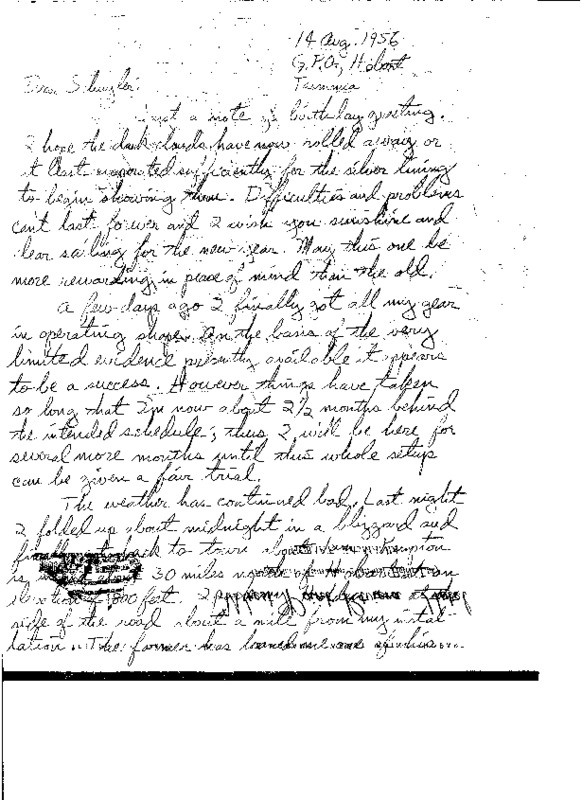 14 Aug. 1956
G.P.O., Hobart
Tasmania
Dear Schuyler:
Just a note of birthday greeting.
I hope the dark clouds have now rolled away or
at least evaporated sufficiently for the silver lining
to begin showing thru. Difficulties and problems
can't last forever and I wish you sunshine and
clear sailing for the new year. May this one be
more rewarding in peace of mind than the old.
A few days ago I finally got all my gear
in operating shape. On the basis of the very
limited evidence presently available it appears
to be a success. However things have taken
so long that I'm now about 2½ months behind
the intended schedule; thus I will be here for
several more months until this whole setup
can be given a fair trial.
The weather has continued bad. Last night
I folded up about midnight in a blizzard and
finally back to town about
is 30 miles north of Hobart at an
elevation of 1800 feet. I
side of the road about a mile from my instal-
lation. The farmer has loaned me one of his